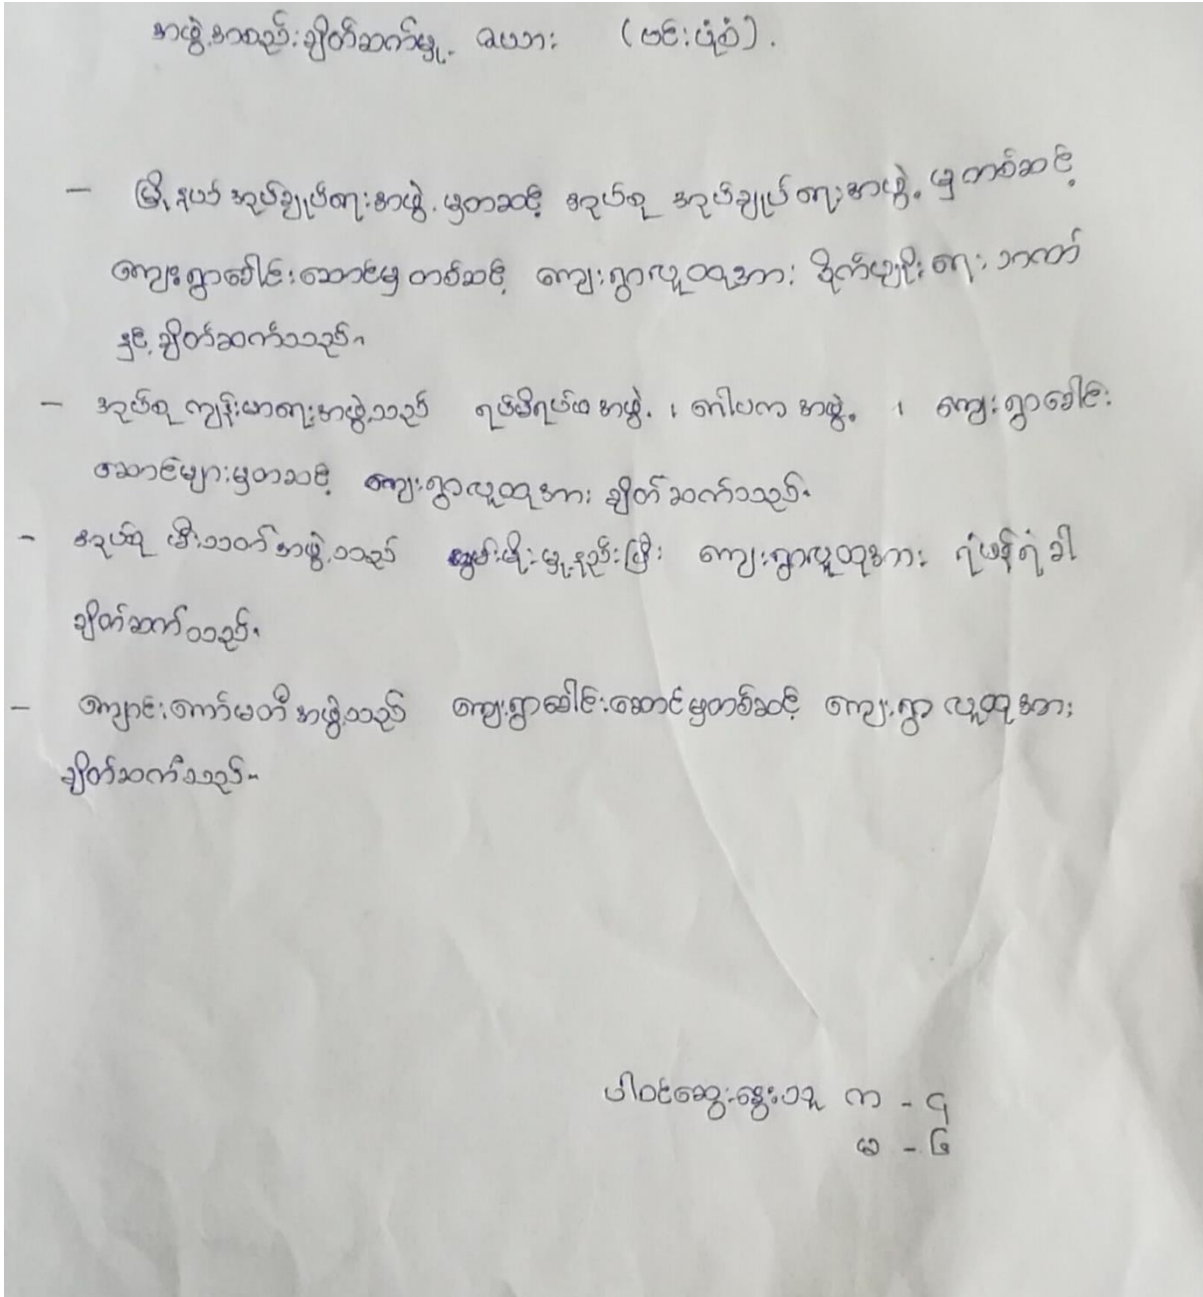 အဖွဲ့အစည်းချိတ်ဆက်မှု ဇယား (မင်းပုံစံ).
- မြို့နယ် အုပ်ချုပ်ရေးအဖွဲ့မှတဆင့် အုပ်စု အုပ်ချုပ်ရေးအဖွဲ့မှ တစ်ဆင့်
ကျေးရွာခေါင်းဆောင်မှ တစ်ဆင့် ကျေးရွာလူထုအား စိုက်ပျိုးရေး ဘဏ်
နှင့် ချိတ်ဆက်သည်။
- အုပ်စု ကျန်းမာရေးအဖွဲ့သည် ရပ်မိရပ်ဖ အဖွဲ့ ၊ ဂေါပက အဖွဲ့ ၊ ကျေးရွာခေါင်း
ဆောင်များမှတဆင့် ကျေးရွာလူထုအား ချိတ်ဆက်သည်။
- အုပ်စု မီးသတ်အဖွဲ့သည် လွှမ်းမိုးမှုနည်းပြီး ကျေးရွာလူထုအား ရံဖန်ရံခါ
ချိတ်ဆက်သည်။
- ကျောင်းကော်မတီအဖွဲ့သည် ကျေးရွာခေါင်းဆောင်မှတစ်ဆင့် ကျေးရွာ လူထုအား
ချိတ်ဆက်သည်။
ပါဝင်ဆွေးနွေးသူ က - ၄
မ - ၆